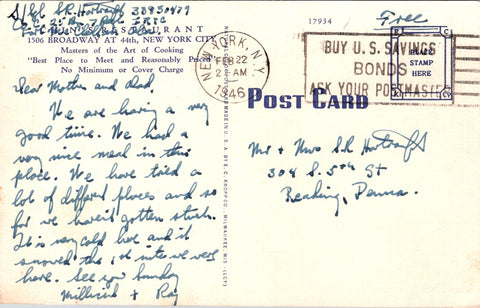 S/Sgt S.R. Hartranft 33830479
Co. C. 25 Bn 7 Regt. IRTC
RESTAURANT
1506 BROADWAY AT 44th, NEW YORK CITY
Masters of the Art of Cooking
"Best Place to Meet and Reasonably Priced"
No Minimum or Cover Charge
Dear Mother and Dad,
We are having a very
good time. We had a
very nice meal in this
place. We have told a
lot of different places and so
far we haven't gotten stuck.
It is very cold here and it
snowed the 1st nite we were
here. See you Sunday
Millicent + Ray
17934
Free
NEW YORK, N.Y.
FEB 22
2 - AM
1946
BUY U.S. SAVINGS
BONDS
ASK YOUR POSTMASTER
PLACE
STAMP
HERE
POST CARD
Mr + Mrs S.R. Hartranft
304 S. 5th St
Reading, Penna.